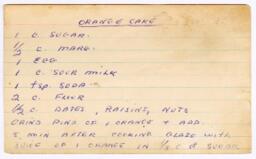 ORANGE CAKE
1 C. SUGAR.
1/2 C. MARG.
1 EGG
1 C. SOUR MILK
1 tsp. SODA
2 C. FLOUR
1/2 C. DATES, RAISINS, NUTS
GRIND RIND OF 1 ORANGE & ADD.
5 MIN AFTER COOKING GLAZE WITH
JUICE OF 1 ORANGE IN 1/2 C. SUGAR